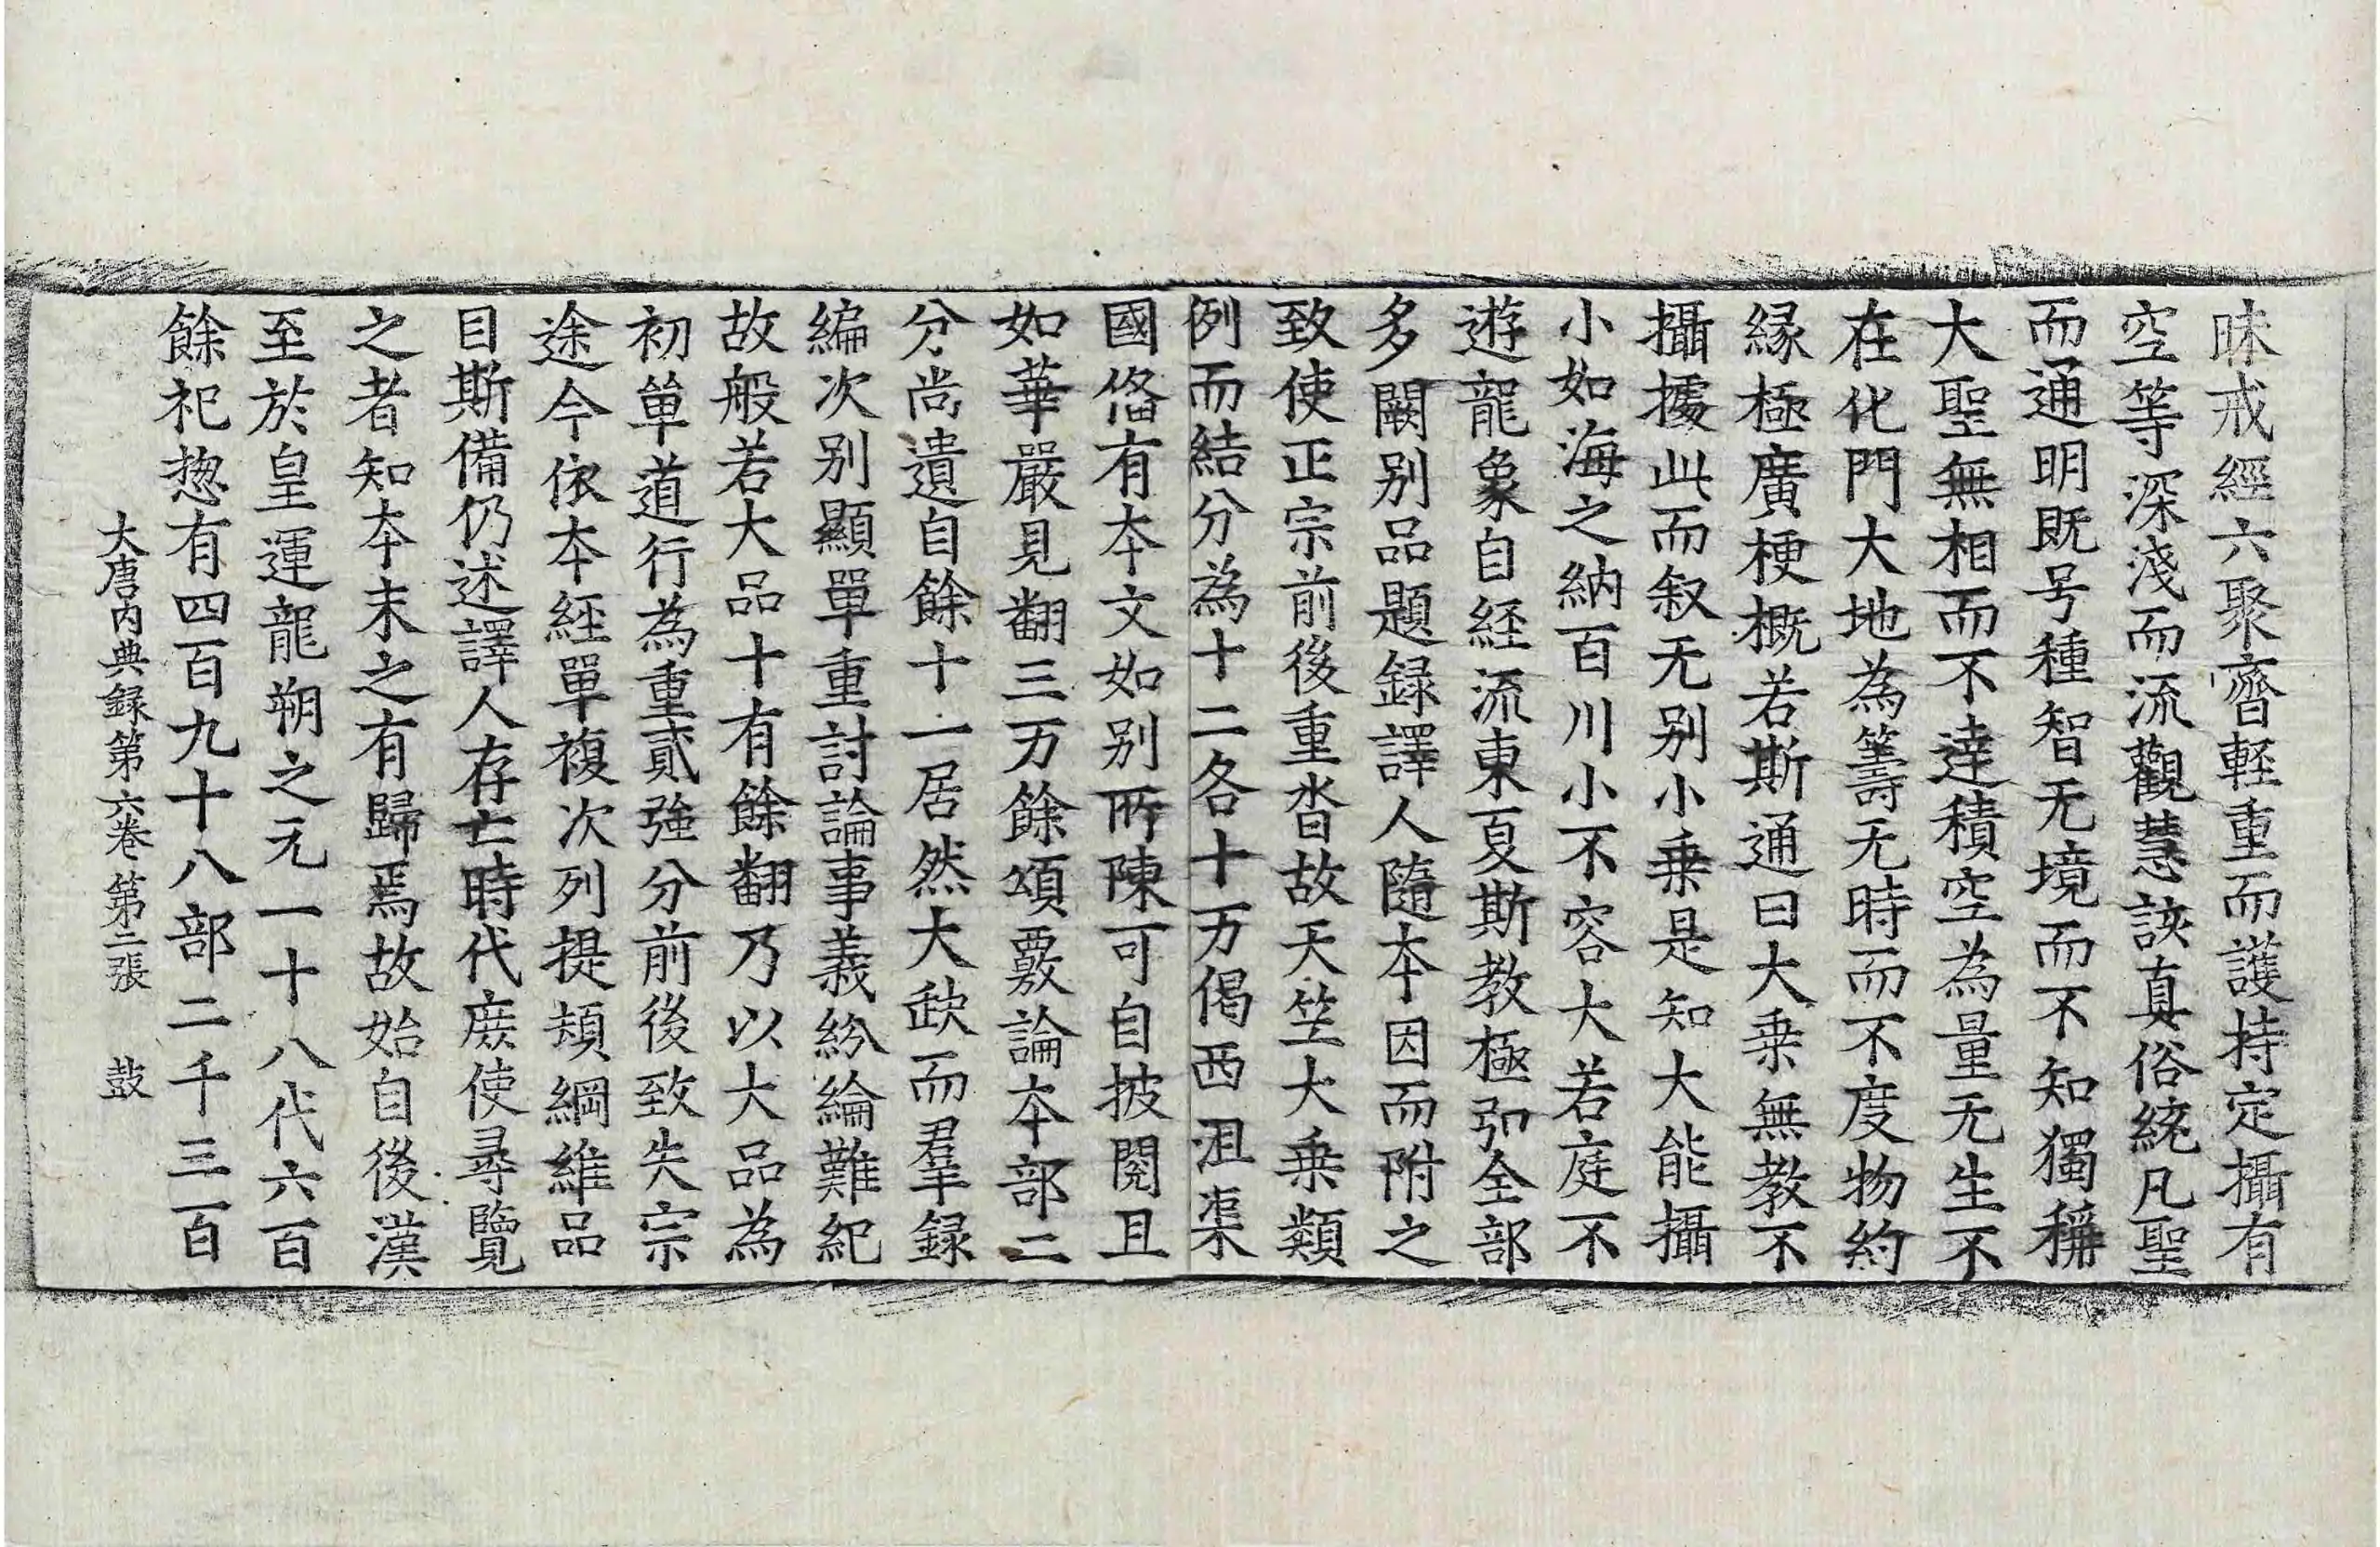 昧戒經六聚齊輕重而護持定攝有
空等深淺而流觀慧該真俗統凡聖
而通明既号種智无境而不知獨稱
大聖無相而不達積空為量无生不
在化門大地為籌无時而不度物約
縁極廣梗概若斯通曰大乗無教不
攝攄此而叙无别小乗是知大能攝
小如海之納百川小不容大若庭不
遊龍象自経流東夏斯教極弘全部
多闕别品題録譯人隨本因而附之
致使正宗前後重沓故天竺大乗類
例而結分為十二各十万偈西沮渠
國俻有本文如别所陳可自披閱且
如華嚴見翻三万餘頌覈論本部二
分尚遺自餘十一居然大欵而羣録
編次别顯單重討論事義紛綸難紀
故般若大品十有餘翻乃以大品為
初單道行為重貳強分前後致失宗
途今依本経單複次列提頍綱維品
目斯備仍述譯人存亡時代庻使尋覽
之者知本末之有歸焉故始自後漢
至於皇運龍朔之元一十八代六百
餘祀揔有四百九十八部二千三百
大唐内典録第六巻 第二張 鼓